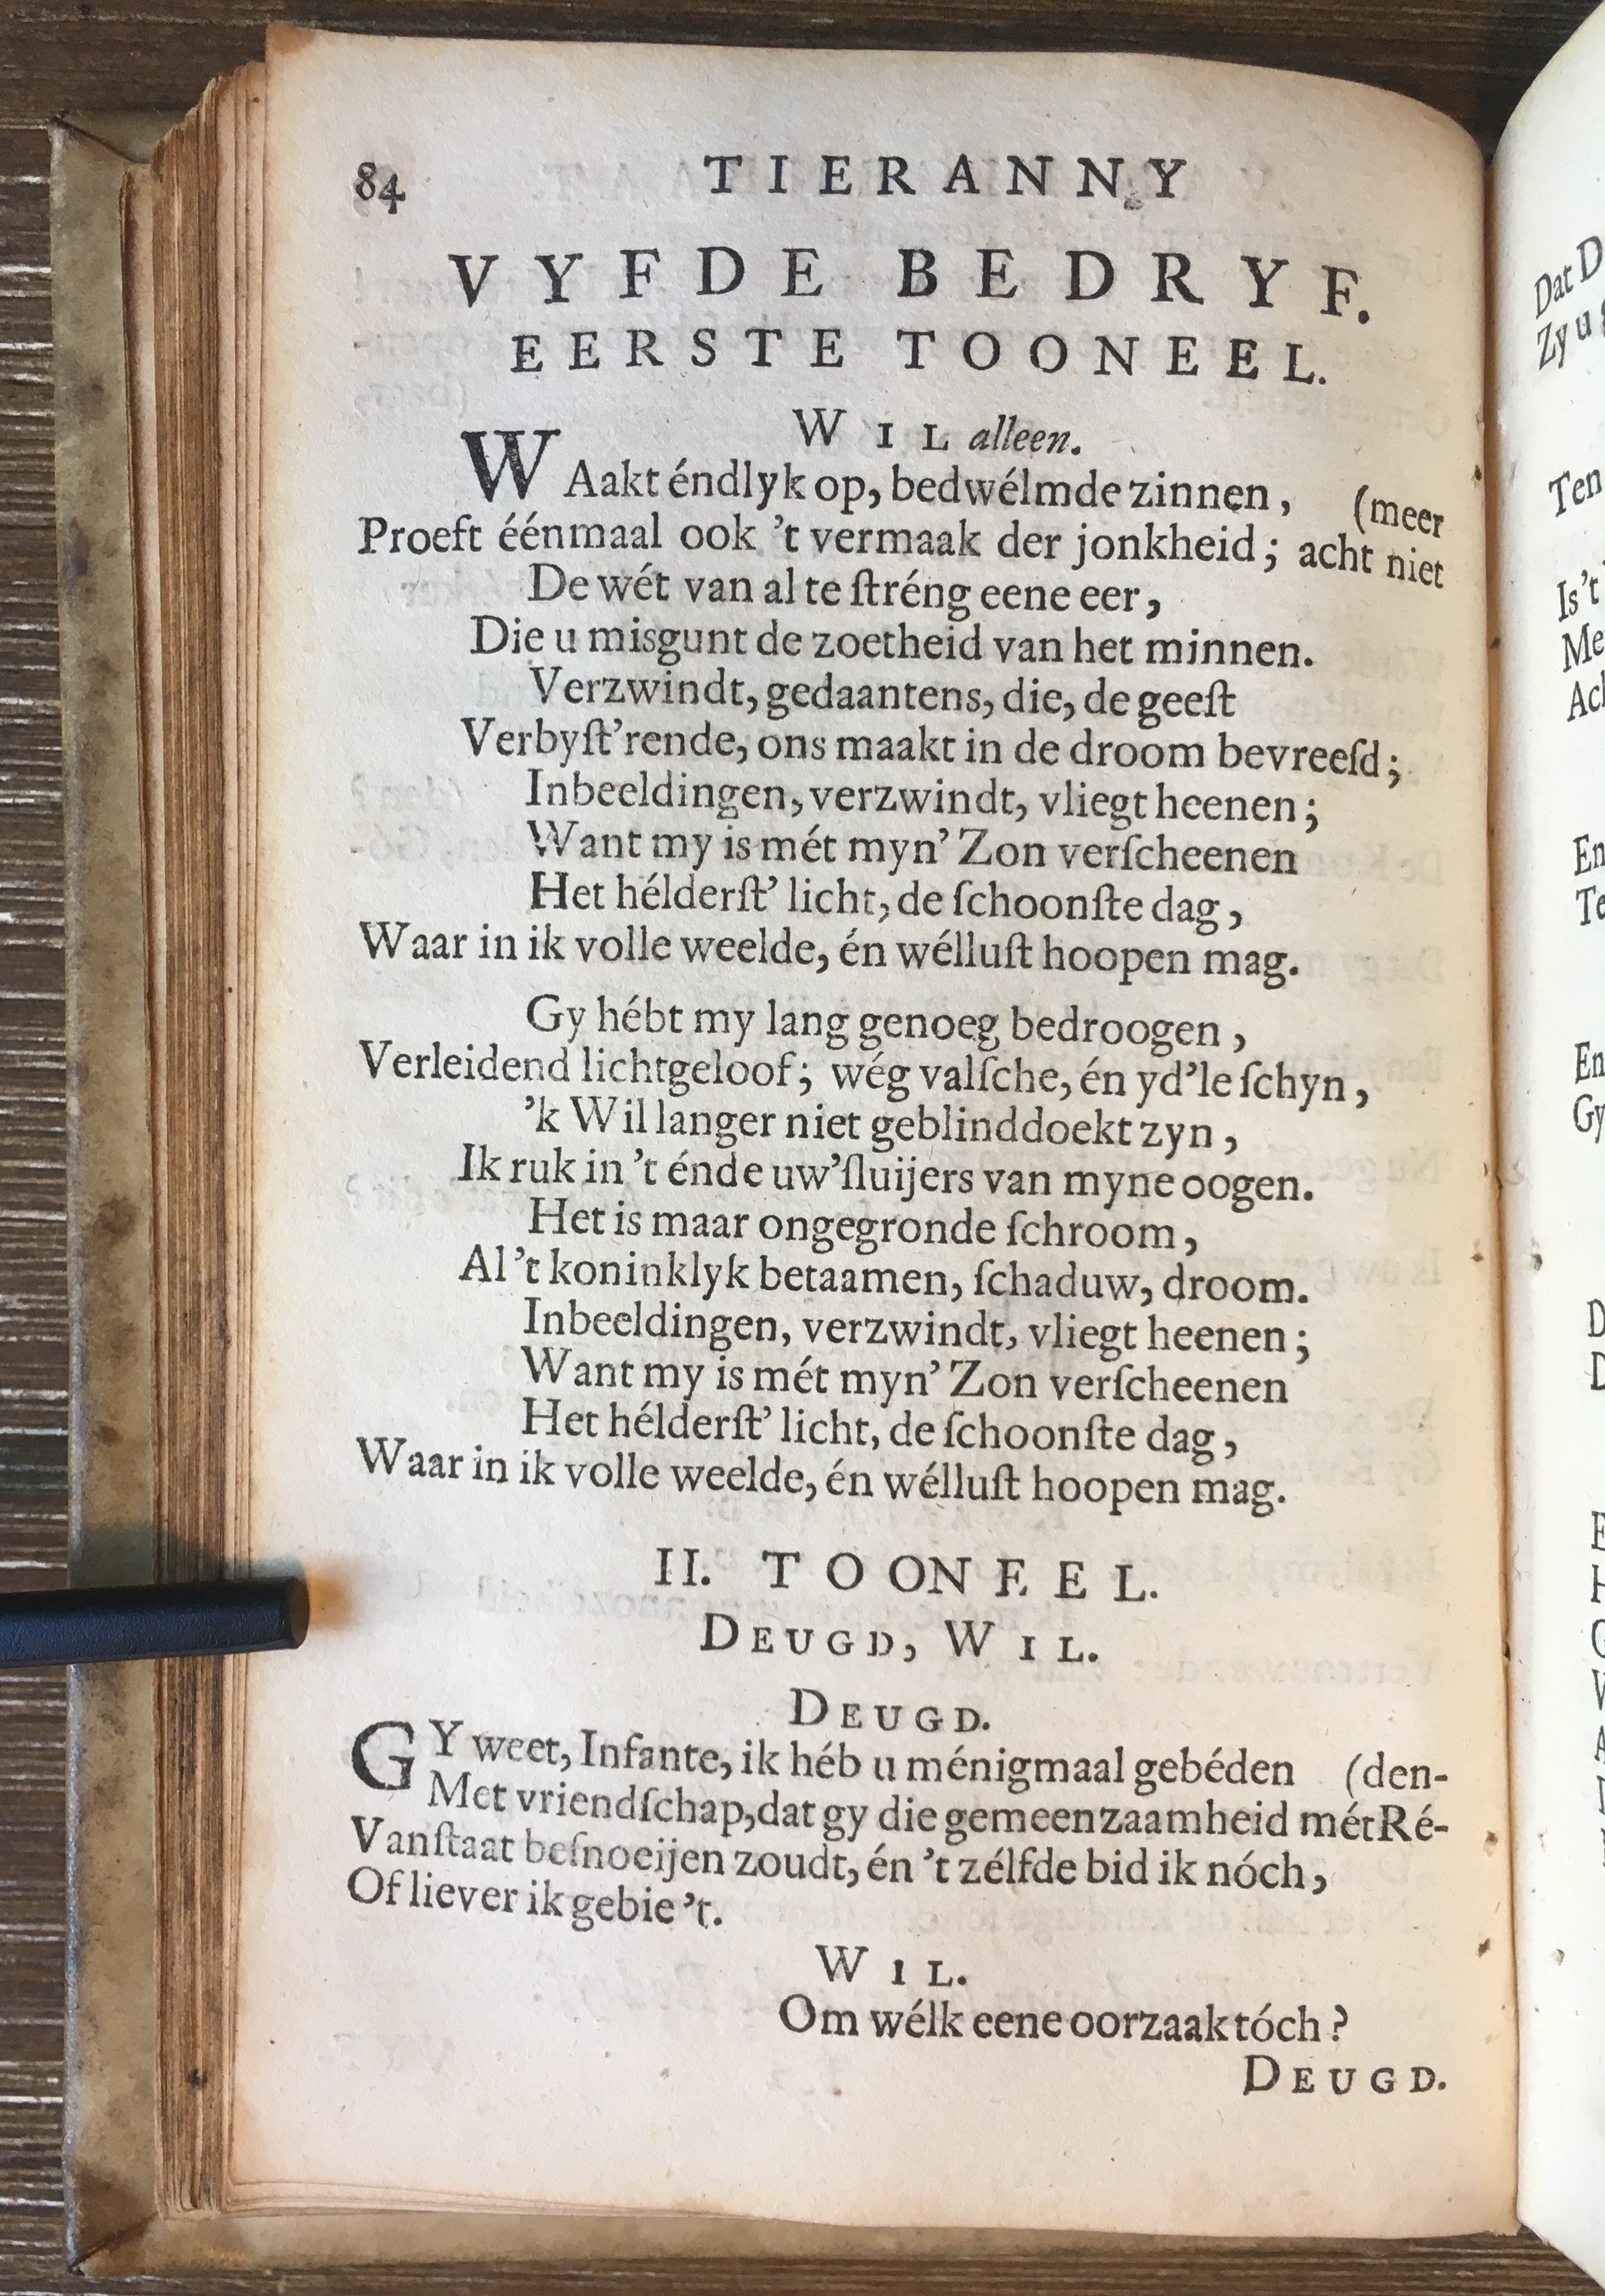 84 TIERANNY
VYFDE BEDRYF.
EERSTE TOONEEL.
WIL alleen.
WAakt éndlyk op, bedwélmde zinnen, (meer
Proeft éénmaal ook 't vermaak der jonkheid; acht niet
De wét van al te ſtréng eene eer,
Die u misgunt de zoetheid van het minnen.
Verzwindt, gedaantens, die, de geeſt
Verbyſt'rende, ons maakt in de droom bevreeſd;
Inbeeldingen, verzwindt, vliegt heenen;
Want my is mét myn' Zon verſcheenen
Het hélderſt' licht, de ſchoonſte dag,
Waar in ik volle weelde, én wélluſt hoopen mag.
Gy hébt my lang genoeg bedroogen,
Verleidend lichtgeloof; wég valſche, én yd'le ſchyn,
'k Wil langer niet geblinddoekt zyn,
Ik ruk in 't énde uw' ſluijers van myne oogen.
Het is maar ongegronde ſchroom,
Al 't koninklyk betaamen, ſchaduw, droom.
Inbeeldingen, verzwindt, vliegt heenen;
Want my is mét myn' Zon verſcheenen
Het hélderſt' licht, de ſchoonſte dag,
Waar in ik volle weelde, én wélluſt hoopen mag.
II. TOONEEL.
DEUGD, WIL.
DEUGD.
GY weet, Infante, ik héb u ménigmaal gebéden (den-
Met vriendſchap, dat gy die gemeenzaamheid mét Ré-
Van ſtaat beſnoeijen zoudt, én 't zélfde bid ik nóch,
Of liever ik gebie 't.
WIL.
Om wélk eene oorzaak tóch?
DEUGD.
Dat D
Zy u
Ten
Is 't
Me
Ach
En
Te
En
Gy